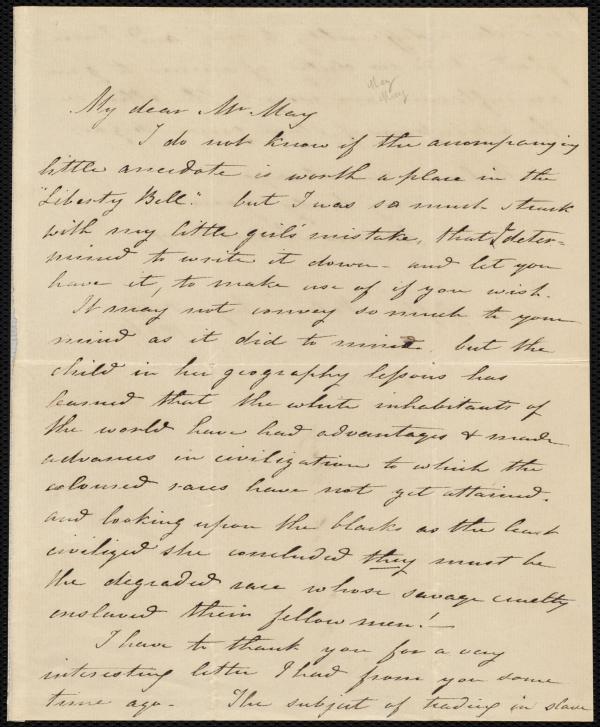 May
May
My dear Mr May
I do not know if the accompanying
little anecdote is worth a place in the
"Liberty Bell". but I was so much struck
with my little girl's mistake, that I deter=
mined to write it down - and let you
have it, to make use of if you wish.
It may not convey so much to your
mind as it did to mine, but the
child in her geography lessons has
learned that the white inhabitants of
the world have had advantages & made
advances in civilization to which the
coloured races have not yet attained.
and looking upon the blacks as the least
civilized she concluded they must be
the degraded race whose savage cruelty
enslaved their fellow men! -
I have to thank you for a very
interesting letter I had from you some
time ago - The subject of trading in slave